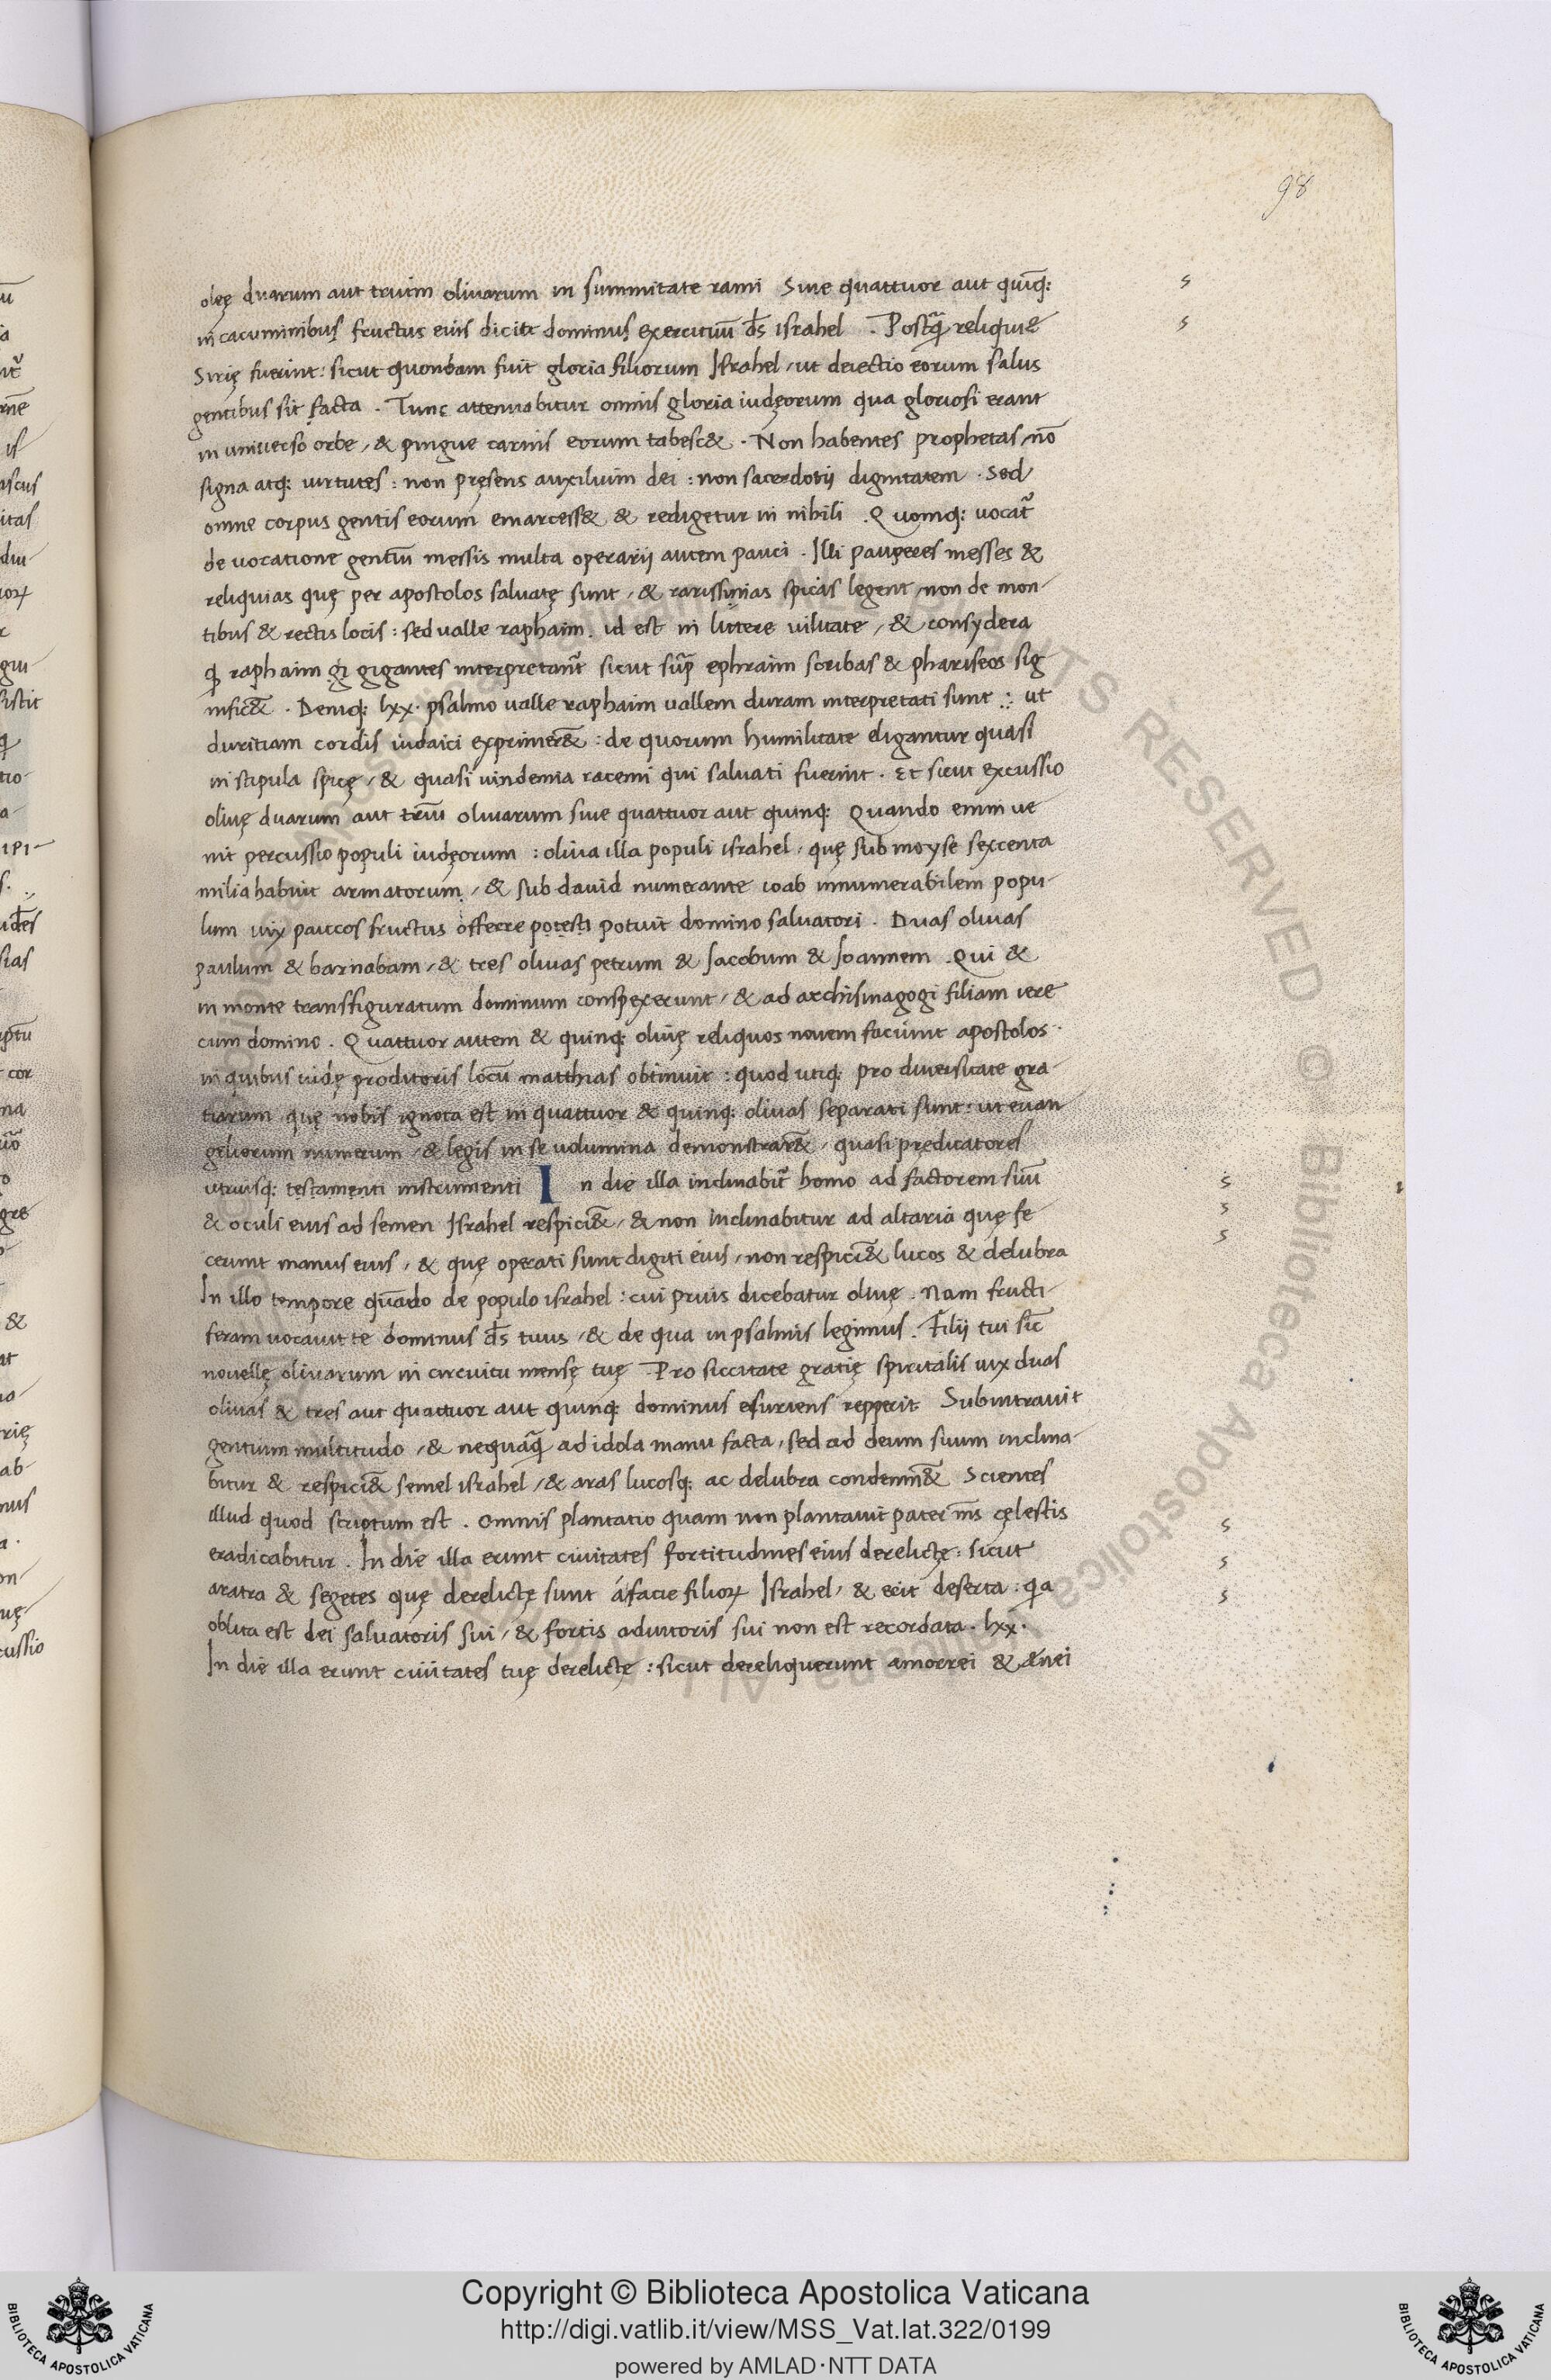 98
olęę duarum aut trium olivarum in summitate rami Sive quattuor aut quīq:
in cacuminibus fructus eius dicit dominus exercituū d̄s israhel . Postq̄ reliquię
Sirię fuerint: sicut quondam fuit gloria filiorum Israhel, ut deiectio eorum salus
gentibus sit facta . Tunc attenuabitur omnis gloria iudęorum qua gloriosi erant
in universo orbe, & pingue carnis eorum tabesc& . Non habentes prophetas, nō
signa atq: virtutes : non pręsens auxilium dei : non sacerdotii dignitatem . Sed
omne corpus gentis eorum emarcess& & redigetur in nihili . Quomq: vocat̄
de vocatione gentiū messis multa operarii autem pauci . Illi pauperes messes &
reliquias quę per apostolos salvatę sunt, & rarissimas spicas legent, non de mon-
tibus & rectis locis : sed valle raphaim . id est in littere vilitate, & consydera
q̄ raphaim gigantes interpretant̄ sicut sup̄ ephraim scribas & phariseos sig
nific& . Deniq: lxx. psalmo valle raphaim vallem duram interpretati sunt : ut
duritiam cordis iudaici exprimer& : de quorum humilitate eligantur quasi
in stipula spicę, & quasi vindemia racemi qui salvati fuerint . Et sicut excussio
olivę duarum aut triū olivarum sive quattuor aut quinq: Quando enim ve
nit percussio populi iudęorum : oliva illa populi israhel, quę sub moyse sexcenta
milia habuit armatorum, & sub david numerante ioab innumerabilem popu-
lum vix paucos fructus offerre potesti potuit domino salvatori . Duas olivas
paulum & barnabam, & tres olivas petrum & Jacobum & Joannem . Qui &
in monte transfiguratum dominum conspexerunt, & ad archisinagogi filiam iere
cum domino . Quattuor autem & quinq: olivę reliquos novem faciunt apostolos .
in quibus iudę proditoris locū matthias obtinuit : quod utiq: pro diversitate gra-
tiarum quę nobis ignota est in quattuor & quinq: olivas separati sunt : ut evan
geliorum numerum, & legis in se volumina demonstrar& , quasi predicatores
utriusq: testamenti instrumenti In die illa inclinabit̄ homo ad factorem suū
& oculi eius ad semen Israhel respici& , & non inclinabitur ad altaria quę fe
cerunt manus eius, & quę operati sunt digiti eius, non respici& lucos & delubra
In illo tempore quādo de populo israhel : cui prius dicebatur olivę . Nam fructi-
feram vocavit te dominus d̄s tuus, & de qua in psalmis legimus . Filii tui sīc
novellę olivarum in circuitu mensę tuę Pro siccitate gratię spiritalis vix duas
olivas & tres aut quattuor aut quinq: dominus esuriens repperit Subintravit
gentium multitudo, & nequāq̄ ad idola manu facta, sed ad deum suum inclina-
bitur & respici& semel israhel, & aras lucosq: ac delubra condemn& Scientes
illud quod scriptum est . Omnis plantatio quam non plantavit pater m̄s cęlestis
eradicabitur . In die illa erunt civitates fortitudines eius derelictę : sicut
aratra & segetes quę derelictę sunt á facie filioꝝ Israhel, & erit deserta : q̄a
oblita est dei salvatoris sui, & fortis adiutoris sui non est recordata . lxx .
In die illa erunt civitates tuę derelictę : sicut dereliquerunt amorrei & ænei
Copyright © Biblioteca Apostolica Vaticana
http://digi.vatlib.it/view/MSS_Vat.lat.322/0199
powered by AMLAD·NTT DATA